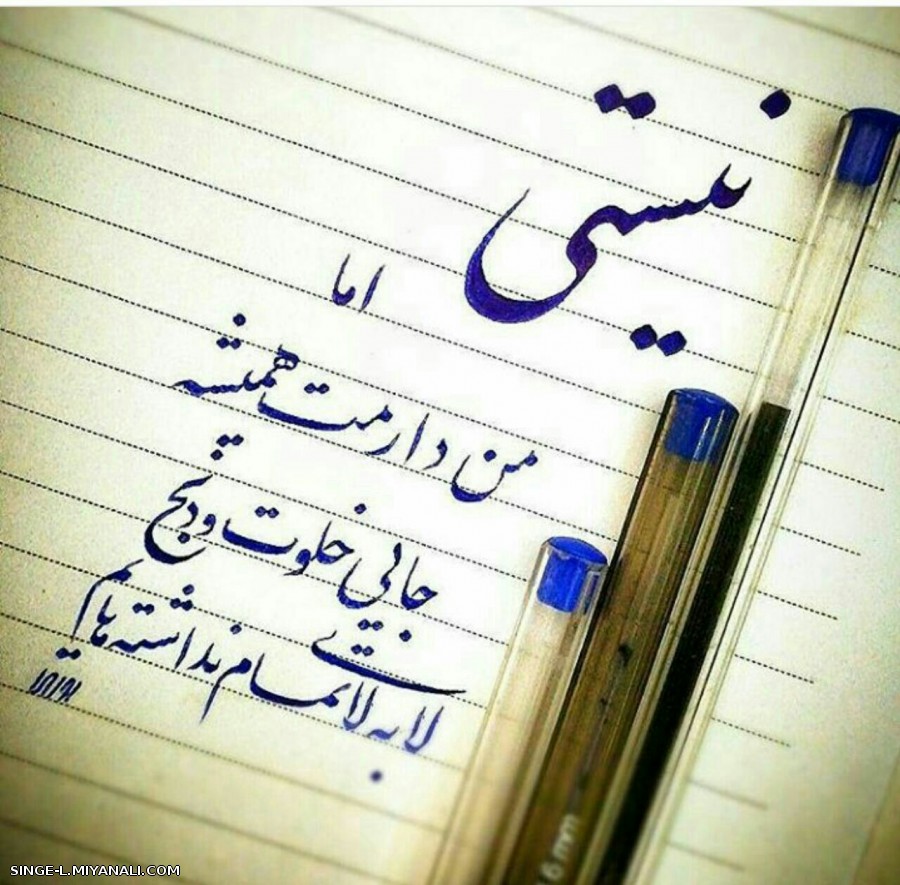 نیستی
اما
من دارمت همیشه
جایی خلوت و دنج
لا به لای تمام نداشته هایم
6 mm
SINGE-L.MIYANALI.COM